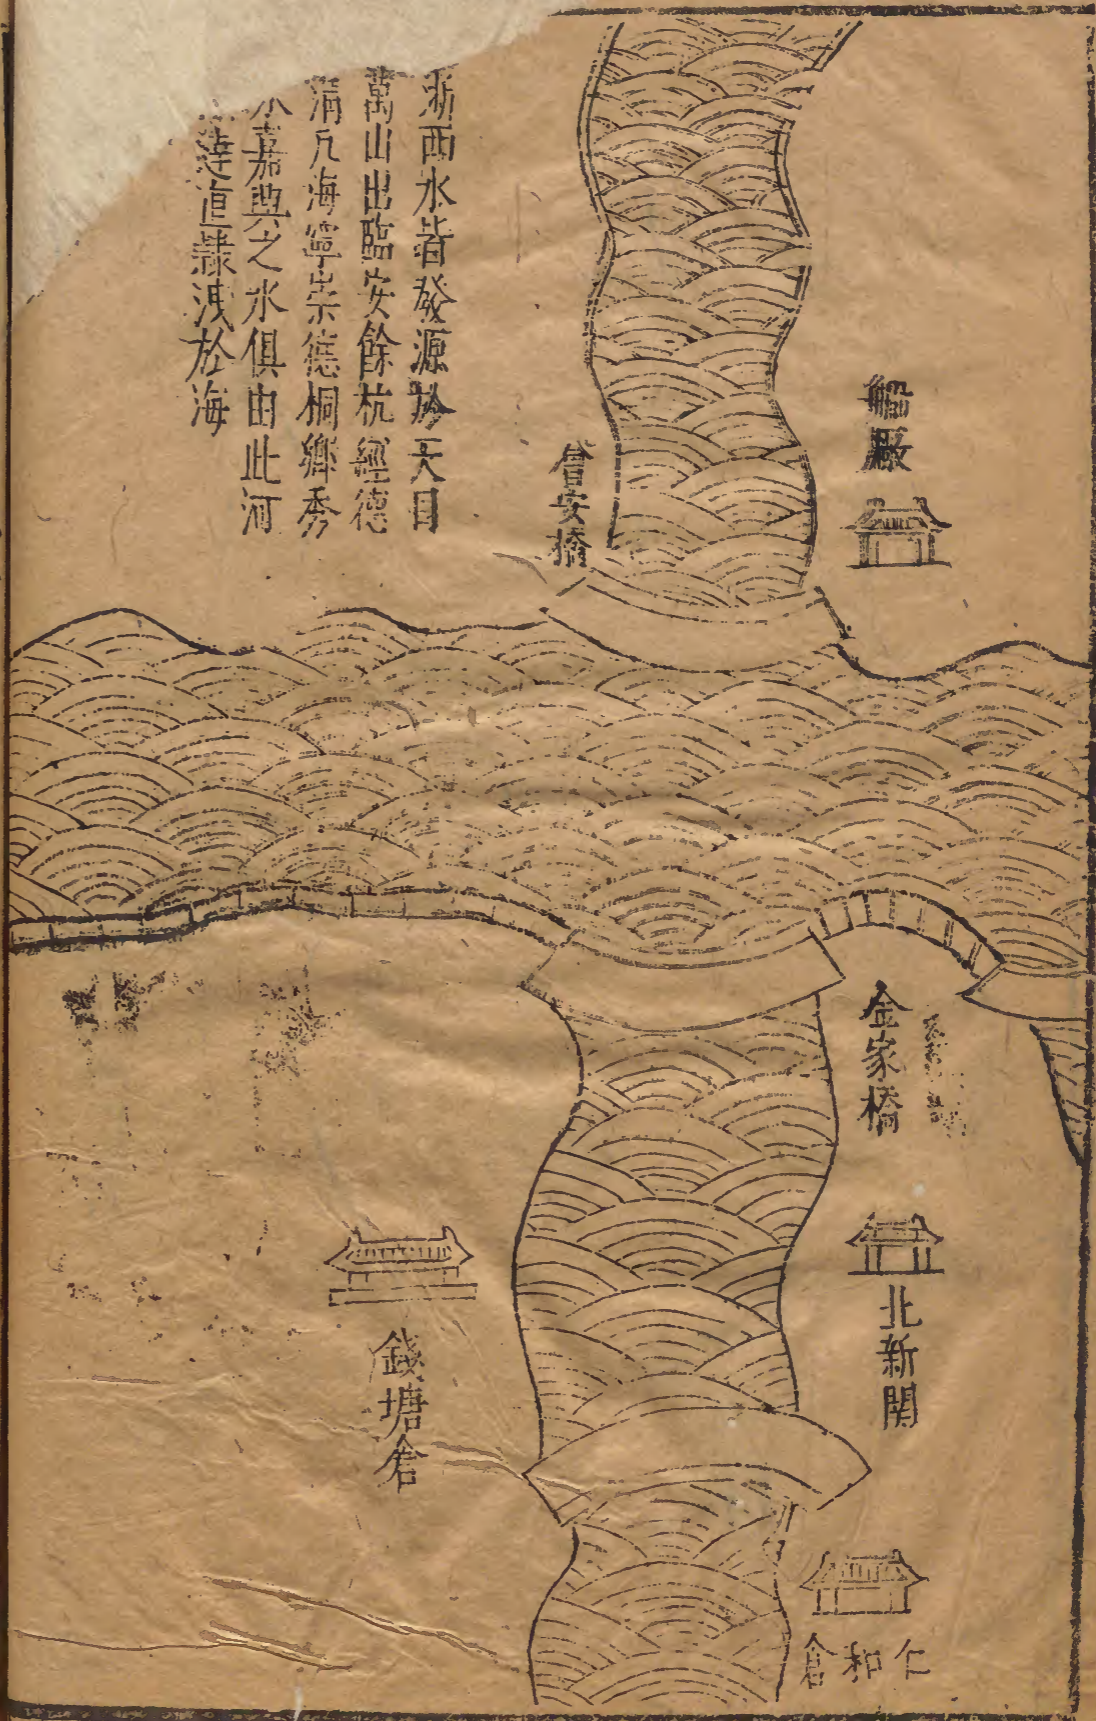 浙西水皆發源於天目
萬山出臨安餘杭經德
清凡海寧崇德桐鄉秀
水嘉興之水俱由此河
達直隸洩於海
廠
安橋
金家橋
北新関
錢塘倉
仁和倉